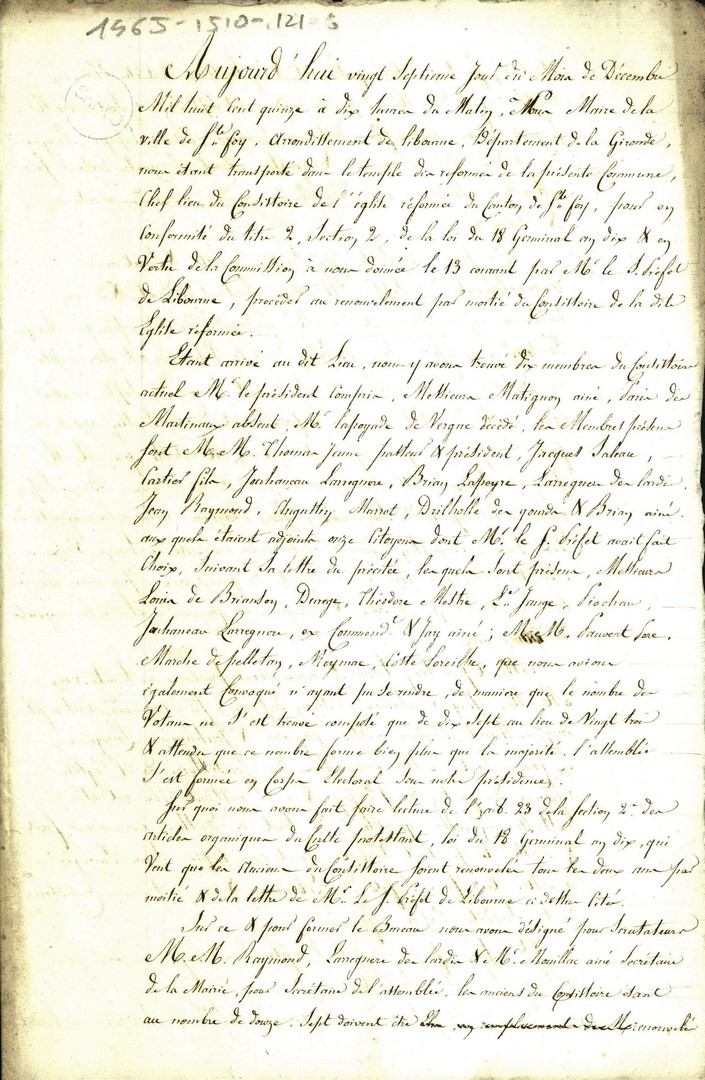 1965-1510-121-5
Aujourd'hui vingt septieme Jour du Mois de Décembre
Mil huit cent quinze à dix heures du Matin, Nous Maire de la
ville de Ste foy, arrondissement de libourne, Département de la Gironde,
nous étant transporté dans le temple des reformés de la présente Commune,
Chef lieu du Consistoire de l'église réformée du Canton de Ste foy, pour en
Conformité du titre 2, Section 2, de la loi du 18 Germinal an dix & en
Vertu de la Commission à nous donnée le 13 courant par Mr le S. Préfet
de Libourne, procéder au renouvelement par moitié du Consistoire de la dite
Eglise réformée.
Etant arrivé au dit Lieu, nous y avons trouvé dix membres du Consistoire
actuel Mr le président Compris, Messieurs Matignon ainé, Paris des
Martinaux absent, Mr lapoyade de Vergne décédé, les Membres présens
sont M. M. Thomas Jeune pasteur & président, Jacques Saleau,
Cartier fils, Jauhaneau Larregnere, Brian Lapeyre, Larregnere des lardi
Jean Raymond, Augustin Marrot, Drilholle des gourds & Brian ainé.
aux quels étaient adjoints onze Citoyens dont Mr le S. Préfet avait fait
Choix, Suivant Sa lettre du précitée, les quels sont présens, Messieurs
Louis de Brianson, Durege, Théodore Mestre, Ls Jauge, Piochau,
Jauhaneau Larregnere, ex Command. & Jay ainé; M. M. Pauvert Pere,
Marche de pelletan, Meymac, Coste Loreilhe, que nous avions
également Convoqué n'ayant pu se rendre, de maniere que le nombre des
Votans ne S'est trouvé composé que de dix Sept au lieu de Vingt trois
& attendu que ce nombre forme bien plus que la majorité, l'assemblée
S'est formée en Corps Electoral sous notre présidence.
Sur quoi nous avons fait faire lecture de l'art. 23 de la Section 2e des
articles organiques du Culte protestant, loi du 18 Germinal an dix, qui
Veut que les Anciens du Consistoire soient renouvelés tous les deux ans par
moitié & de la lettre de Mr Le S. Préfet de Libourne ci dessus Cité.
Sur ce & pour former le Bureau nous avons désigné pour Scrutateurs
M. M. Raymond, Larregnere des lardis & Mr Mouillac ainé Secrétaire
de la Mairie, pour Secrétaire de l'assemblée, les anciens du Consistoire étant
au nombre de douze, Sept doivent être en remplacement des renouvelé